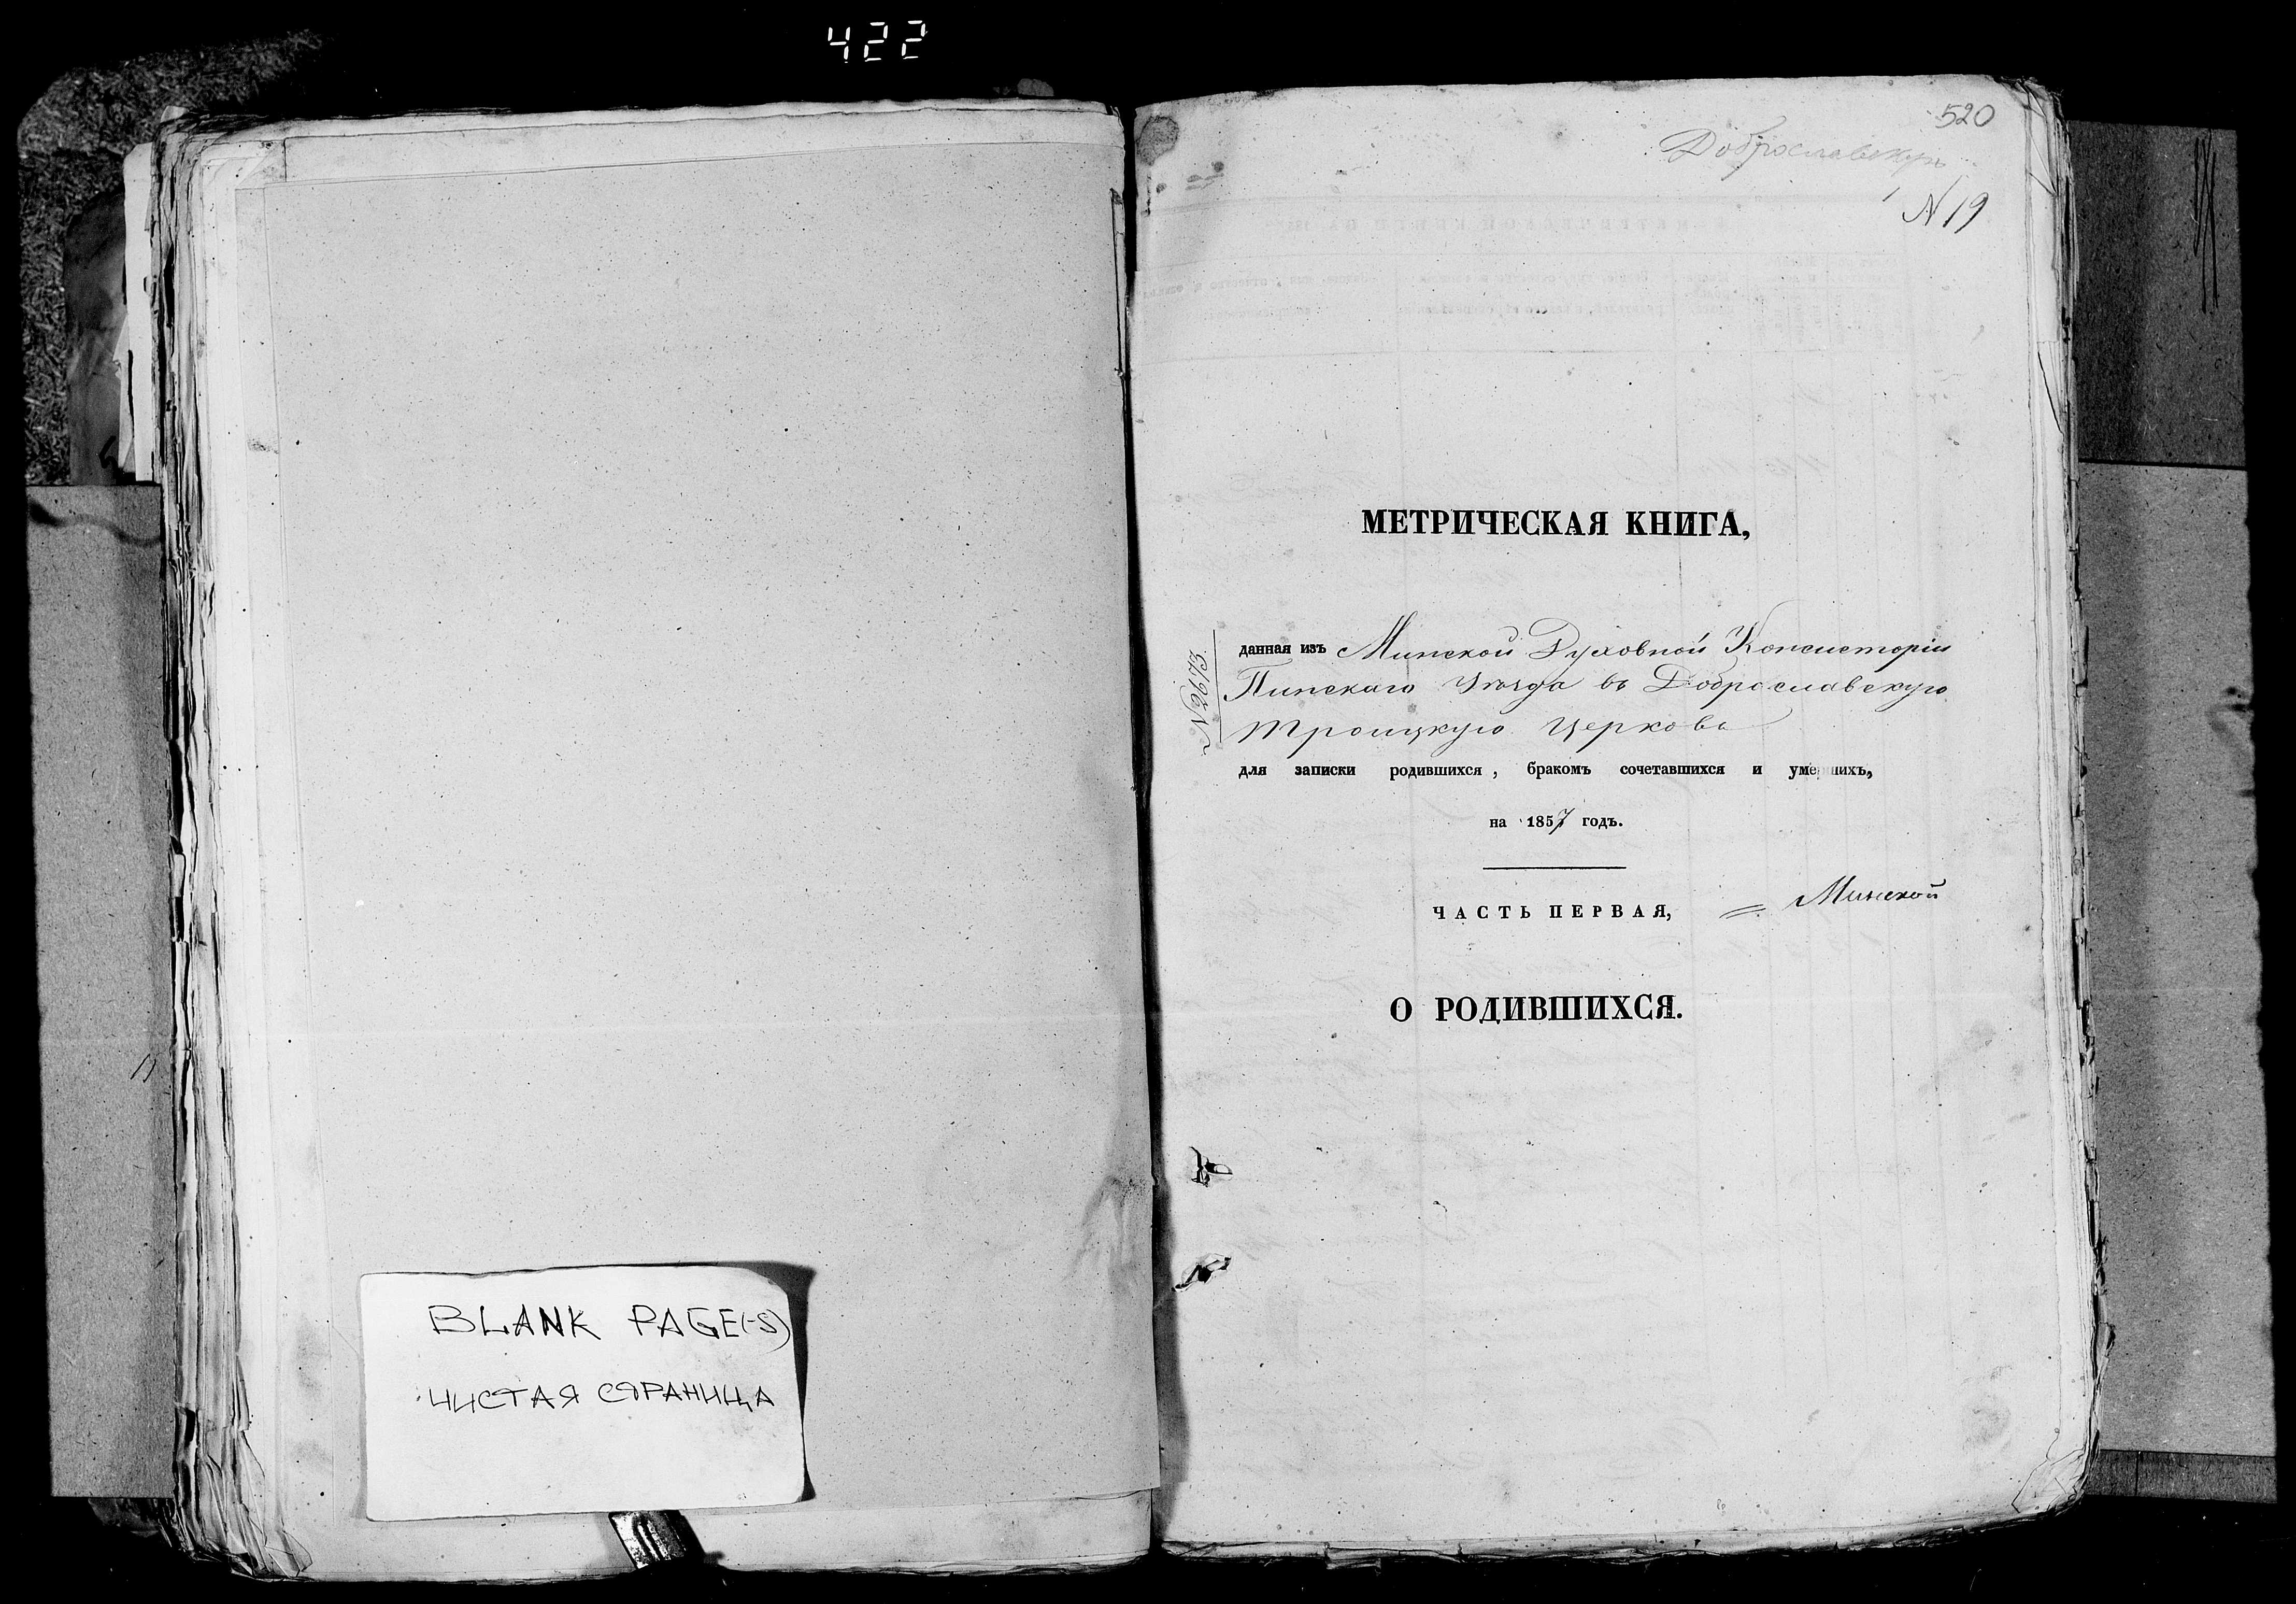 422
BLANK PAGE(-S)
ЧИСТАЯ СТРАНИЦА
520
Доброславскую
N 19
МЕТРИЧЕСКАЯ КНИГА,
N 2673.
данная изъ Минской Духовной Консисторіи
Пинскаго Уѣзда въ Доброславскую
Троицкую Церковь
для записки родившихся, бракомъ сочетавшихся и умершихъ,
на 1857 годъ.
ЧАСТЬ ПЕРВАЯ, = Минской
О РОДИВШИХСЯ.